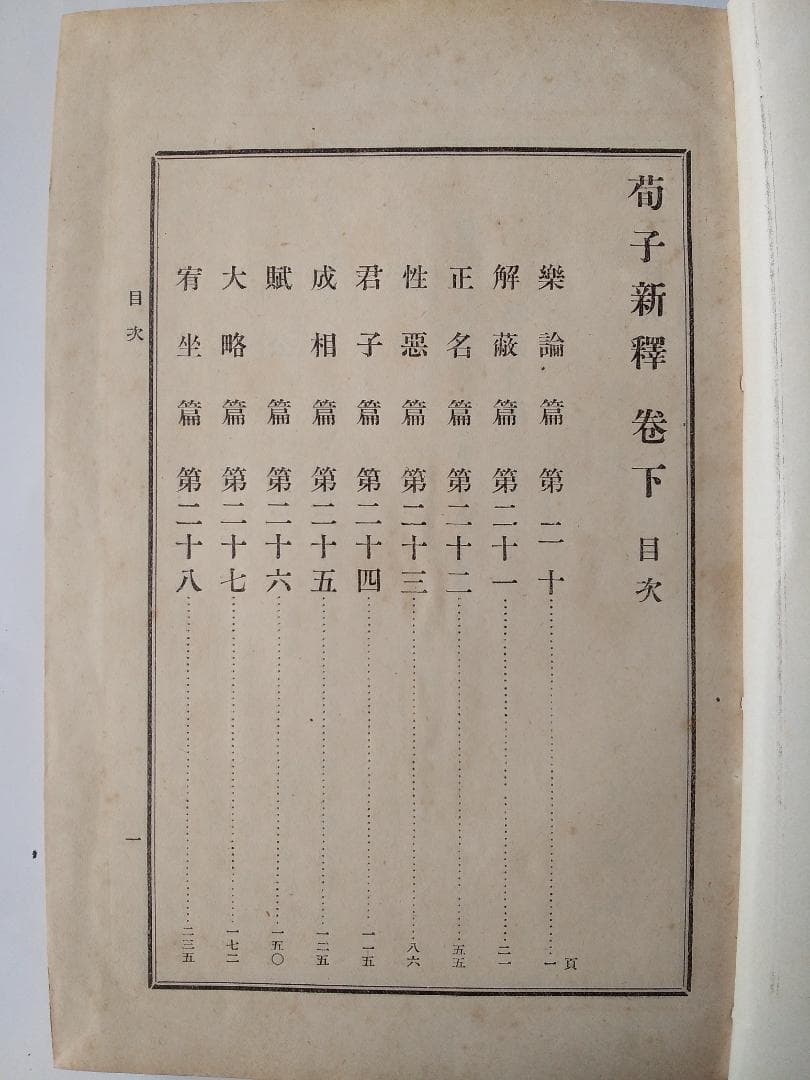 荀子新釋 卷下 目次
頁
樂論篇第二十……一
解蔽篇第二十一……二一
正名篇第二十二……五五
性惡篇第二十三……八六
君子篇第二十四……一一五
成相篇第二十五……一二五
賦篇第二十六……一五〇
大略篇第二十七……一七二
宥坐篇第二十八……二三五
目次
一